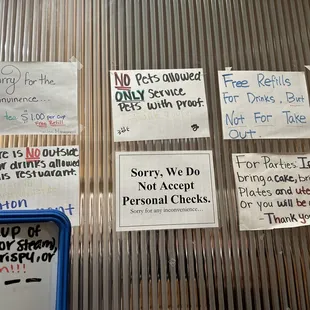 rry for the
nvinence....
tea $1.00 per cup
Free Refill
NO Pets allowed
ONLY Service
Pets with proof.
Free Refills
For Drinks, But
Not For Take
Out.
re is NO outside
or drinks allowed
is restuarant.
Sorry, We Do
Not Accept
Personal Checks.
Sorry for any inconvenience...
For Parties If
bring a cake, br
Plates and ute
Or you will be
-Thank yo
UP OF
or steam,
rispy, or
n!!!